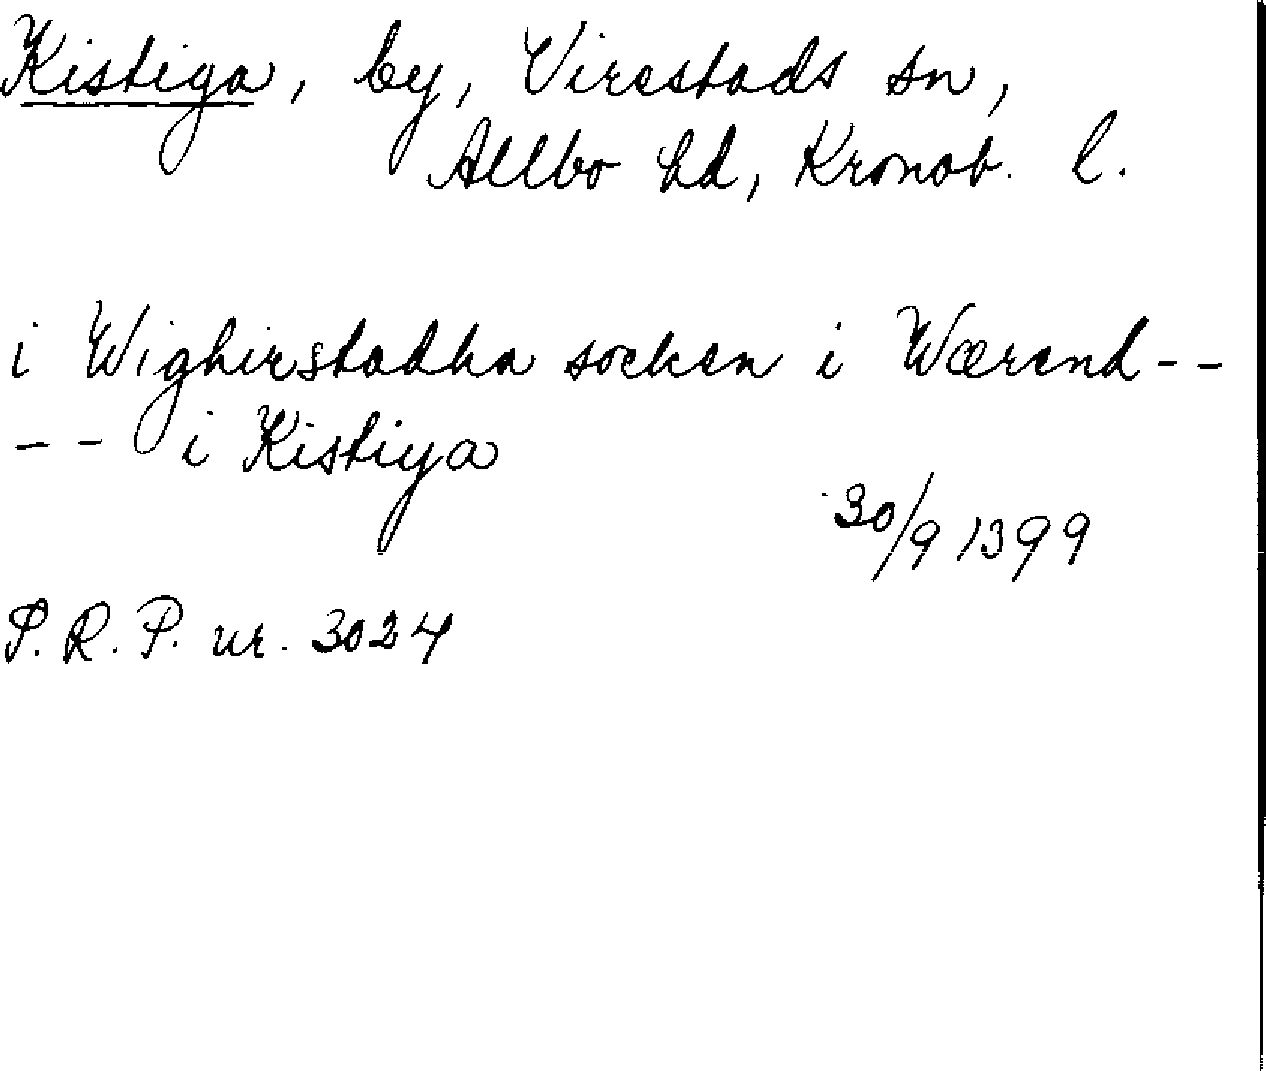 Kistiga, by, Virestads sn,
Allbo hd, Kronob. l.
i Wighirstadha socken i Wærend --
-- i Kistiya
30/9 1399
S.R.P. nr. 3024